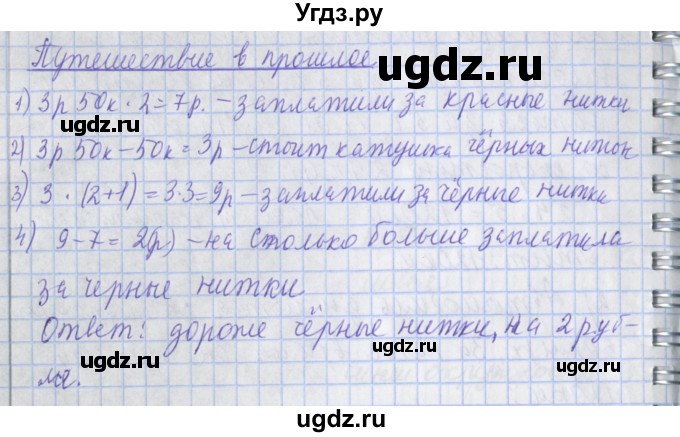 Угдз.ру
Путешествие в прошлое
1) 3р 50к · 2 = 7р. – заплатили за красные нитки
2) 3р 50к – 50к = 3р – стоит катушка чёрных ниток
3) 3 · (2+1) = 3·3 = 9р – заплатили за чёрные нитки
4) 9 – 7 = 2(р) – на столько больше заплатила
за черные нитки
Ответ: дороже чёрные нитки, на 2 руб-
ля.
ugdz.ru
ugdz.ru
ugdz.ru
ugdz.ru
ugdz.ru
ugdz.ru
ugdz.ru
ugdz.ru
ugdz.ru